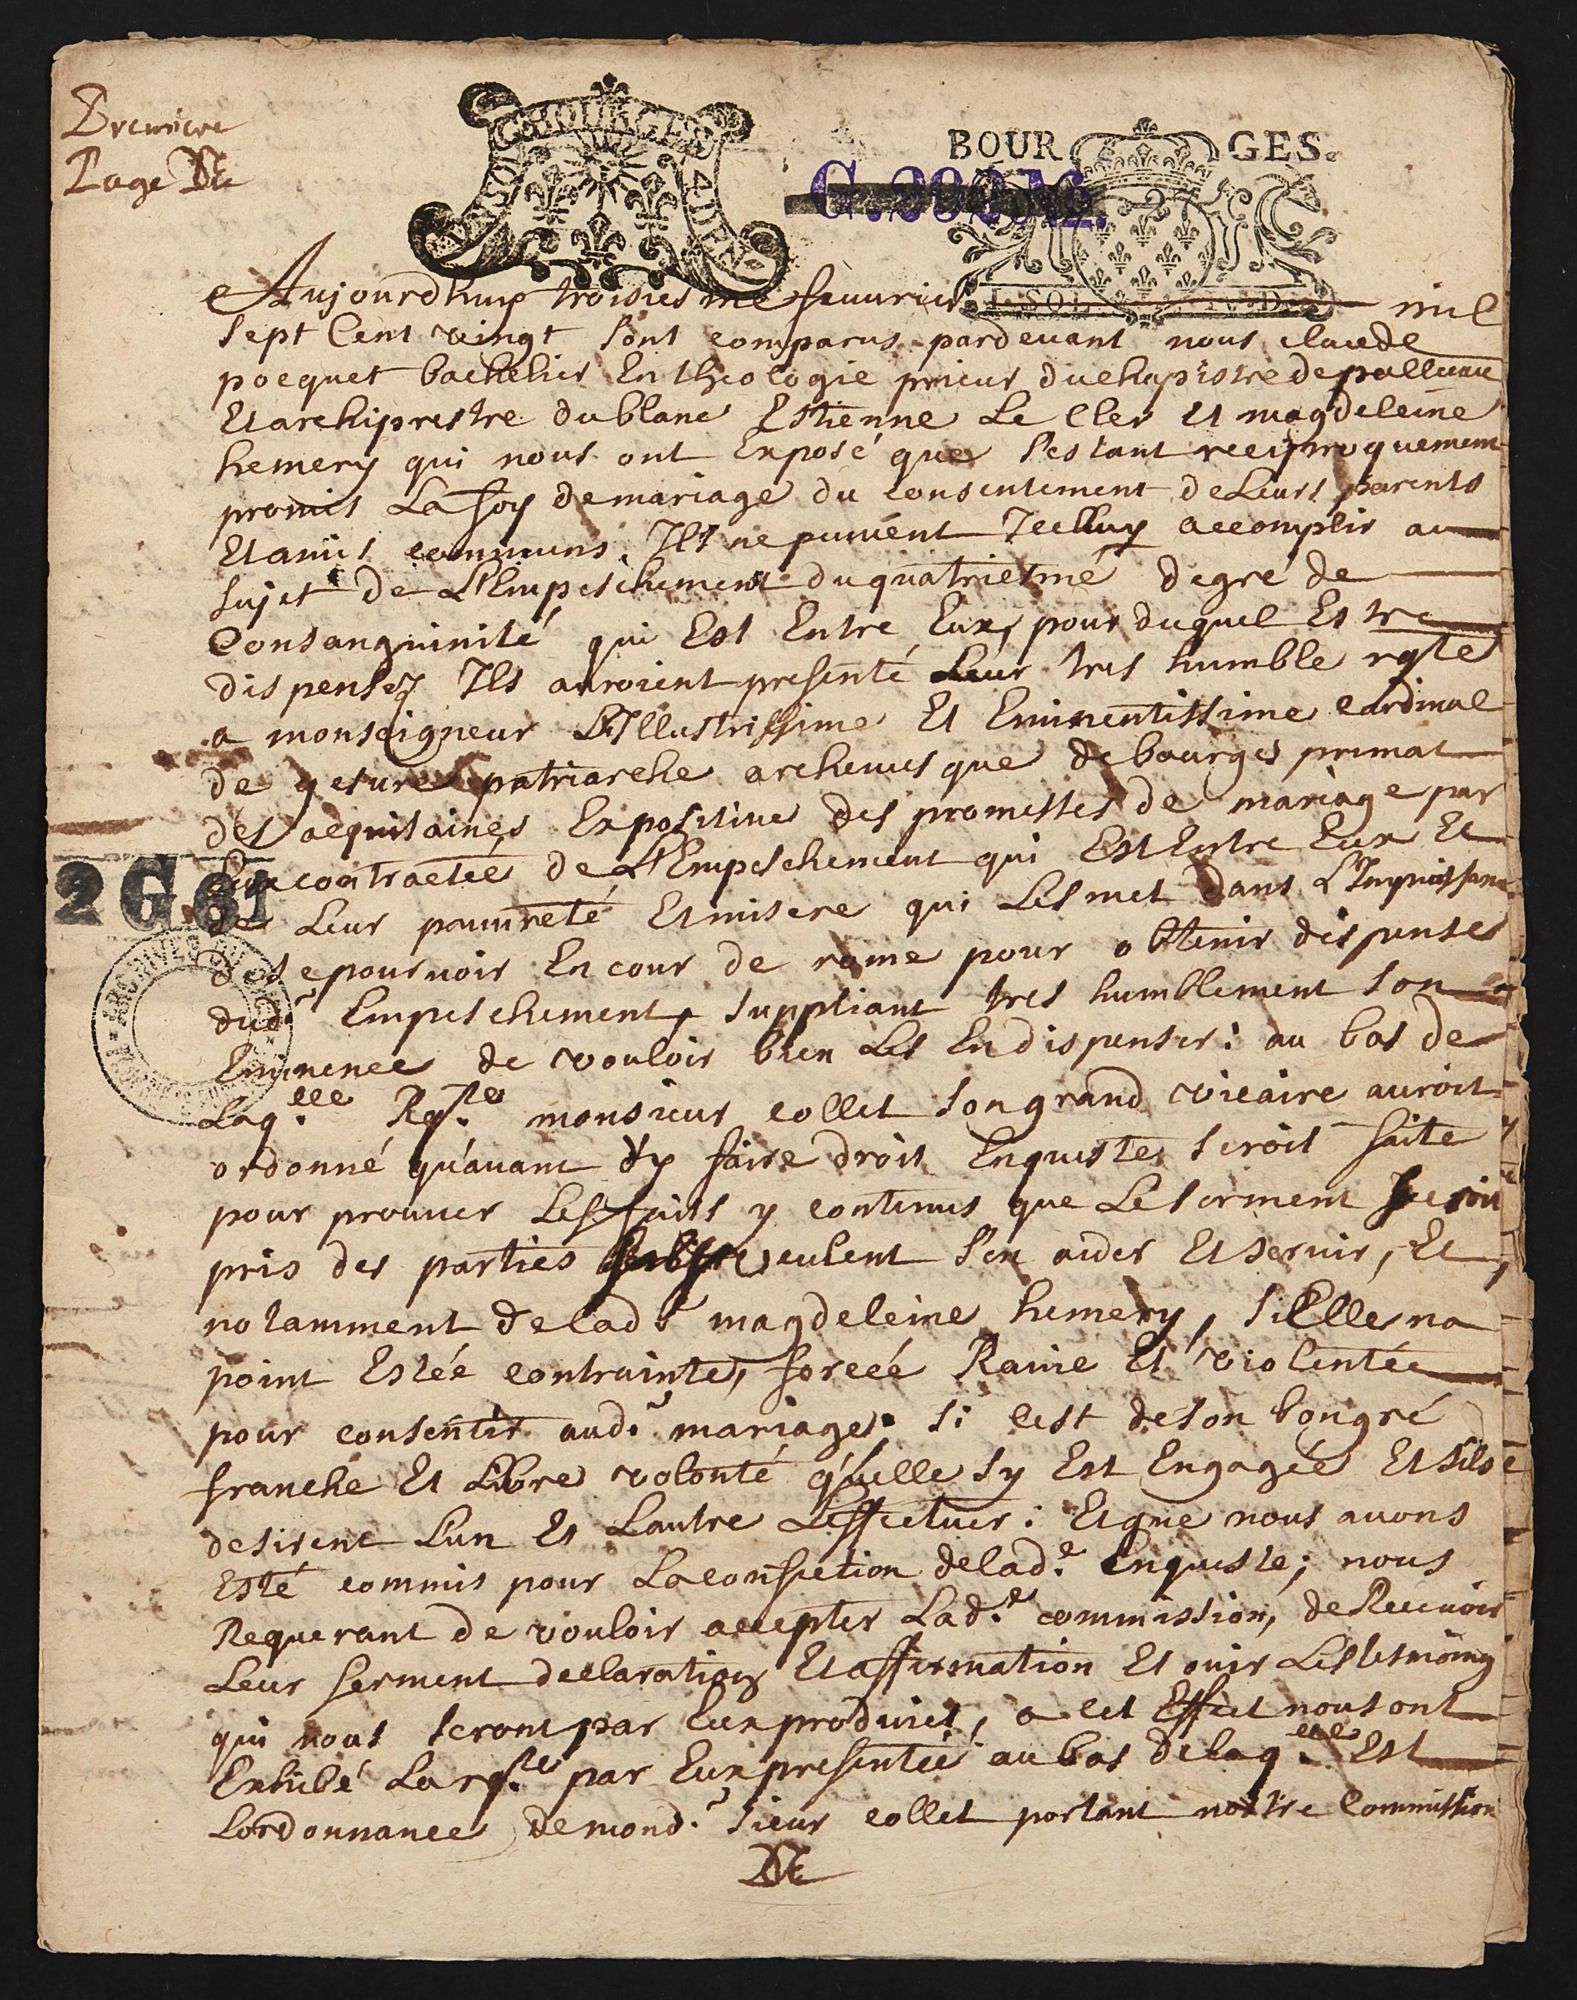 Premiere
Page
BOURGES.
G.
Aujourdhuy troisiesme feuurier mil
sept Cent vingt sont comparus pardeuant nous claude
pocquet bachelier En theologie prieur duchapistre depalluau
Et archiprestre dublanc Estienne Le Clerc Et magdeleine
hemery qui nous ont Exposé que s'estant reciproquement
promis La foy demariage du consentement deLeurs parents
Et amis communs. Ils ne peuuent Icelluy accomplir au
sujet de L'Empeschement duquatriesme degré de
Consanguinité qui Est Entre Eux, pour duquel Estre
dispensez Ils auroient presenté Leur tres humble rqte
a monseigneur L'Illustrissime Et Eminentissime cardinal
de gesure patriarche archeuesque de bourges primat
des acquitaines Expositiue des promesses de mariage par
Eux contractée de L'Empeschement qui Est Entre Eux Et
de Leur pauureté Et misere qui Les met dans L'Impuissance
de se pouruoir En cour de rome pour obtenir dispense
dud. Empeschement, suppliant tres humblement son
Eminence de vouloir bien Les En dispenser: au bas de
Laq.elle Rq.te monsieur collet son grand vicaire auroit
ordonné qu'auant d'y faire droit Enqueste seroit faite
pour prouuer Les faits y contenus que Le serment seroit
pris des parties veulent s'en aider Et seruir, Et
notamment de lad.e magdeleine hemery, si Elle na
point Estée contrainte, forcée Rauie Et violentée
pour consentir aud. mariage. si cest de son bongré
franche Et Libre volonté qu'elle sy Est Engagée Et sils
desirent Lun Et Lautre L'effectuer: Et que nous auons
Esté commis pour La confection de lad.e Enqueste; nous
Requerant de vouloir accepter Lad.e commission, de Receuoir
Leur serment declaration Et affirmation Et ouir Les tesmoins
qui nous seront par Eux produits, a cet Effect nous ont
Exhibé La rq.te par Eux presentée au bas de laq.elle Est
Lordonnance de mond. sieur collet portant nostre Commission
2 G 61
ARCHIVES